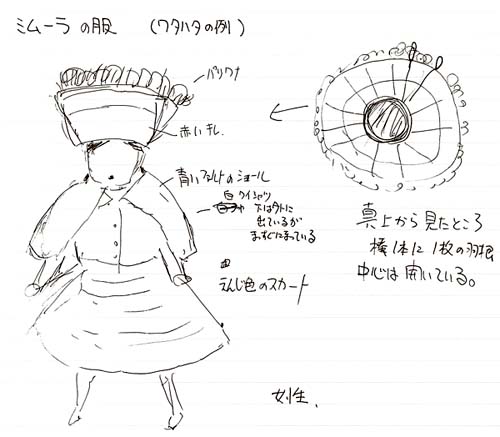 ミムーラ の服 (ワタハタの例)
パリワナ
赤い布
青いフェルトのショール
白 ワイシャツ
下は外に
出ているが
まっすぐになっている
えんじ色のスカート
女性、
真上から見たところ
横1本に1枚の羽根
中心は開いている。